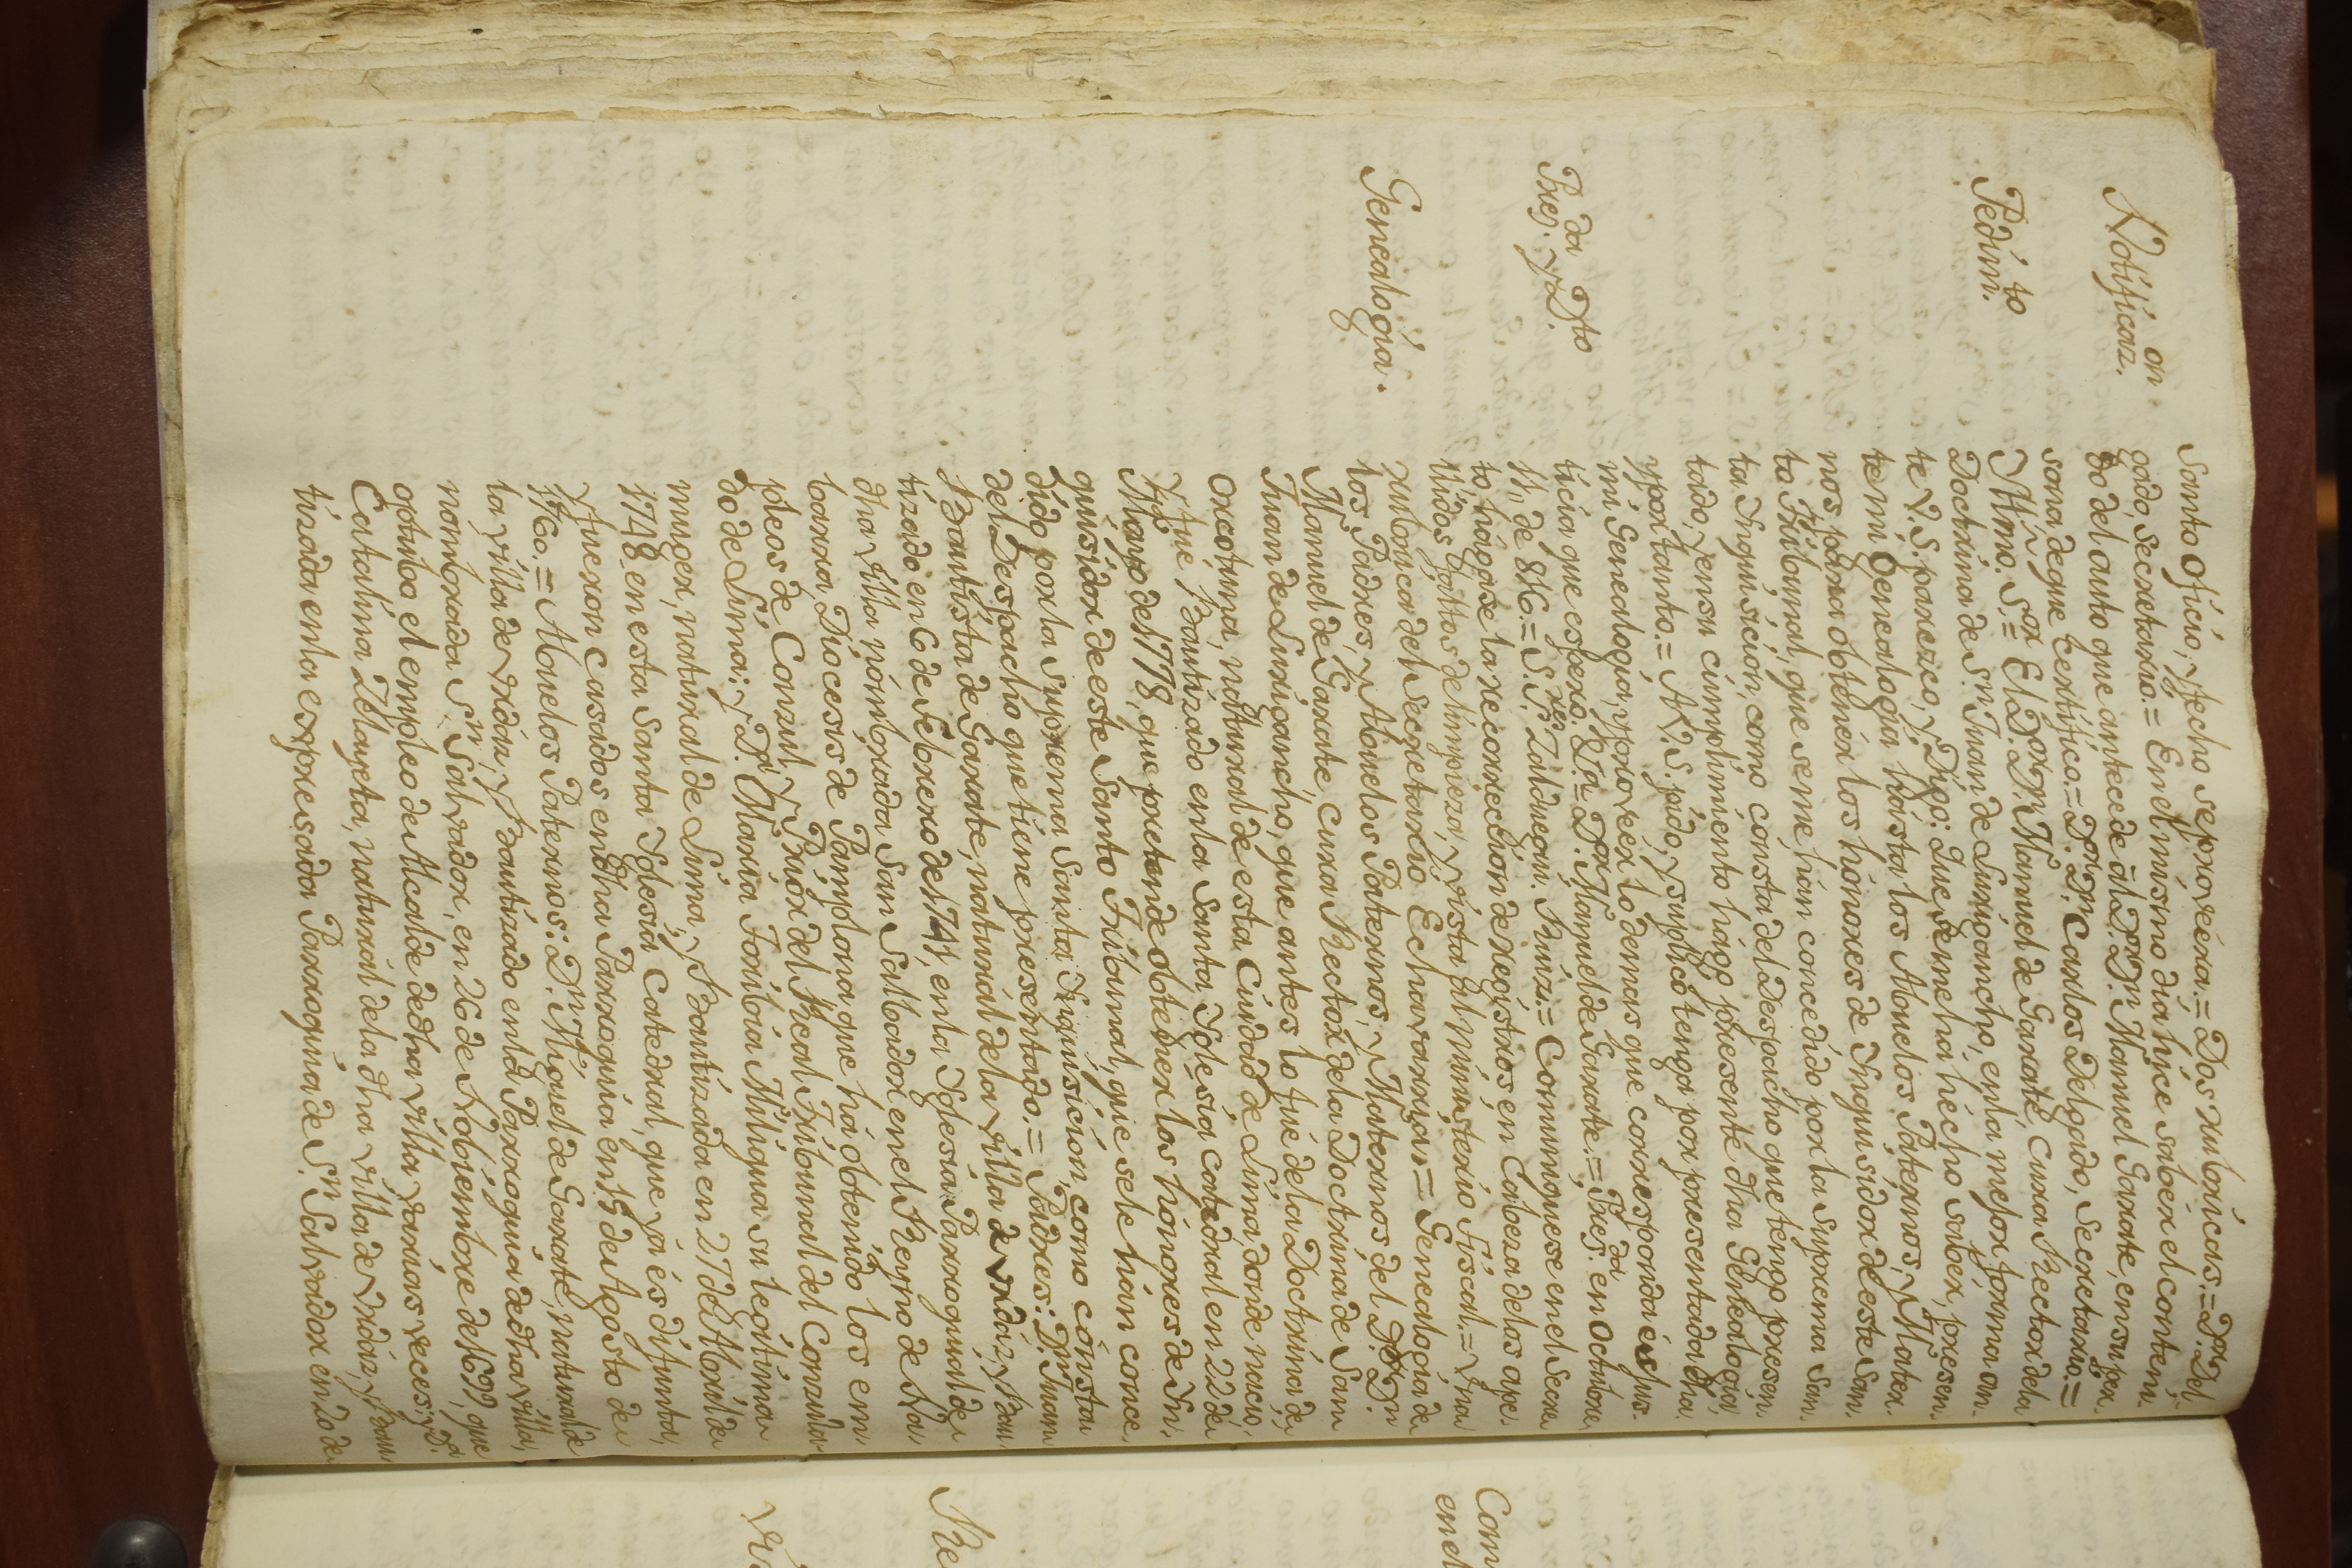 Santo Oficio, y fecho se proveéra.= Dos rubricas.= Dor. Del
gado, Secretario.= En el mismo dia hice saber el conteni
Notificaz.on
do del auto que antecede al D. Dor. Dn. Manuel Garate, en su per
sona de que certifico.= Dor. Dn. Carlos Delgado, Secretario.=
Pedim.to
Yllmo. S.or= El Dor. Dn. Manuel de Garate, Cura Rector de la
Doctrina de Sn. Juan de Lurigancho, en la mejor forma an
te V.S. parezco, y Digo: Que se me ha hécho saber, presen
te mi Genealogia hasta los Abuelos Paternos, y Mater
nos para obtener los hónores de Ynquisidor de este San
to Tribunal, que se me hán concedido por la Suprema San
ta Ynquisición, como consta del Despacho que tengo presen
tado, y en su cumplimiento hágo presente dha Genealogia,
y por tanto.= A V.S. pido, y suplico tenga por presentada dha
mi Genealogia, y proveér lo demas que corresponda és jus
ticia que espero. &a.= Dor. Manuel de Garate.=
Pres.da y D.to
Pres.da en Octubre
11,, de 816.= S.S.res Zalduegui. Ruiz.= Comuniquese en el Secre
to hágase la recorrección de registros en Cabeza de los ape
llidos faltos de limpieza, y vista al ministerio Fiscal.= Una
rubrica del Secretario Echavarria,,=
Genealogia.
Genealogia de
los Padres, y Abuelos Paternos, y Maternos del D. Dn.
Manuel de Garate, Cura Rector de la Doctrina de San
Juan de Lurigancho, que antes lo fué de la Doctrina de
Orcotuna, natural de esta Ciudad de Lima, donde nació,
y fue Bautizado en la Santa Iglesia Catedral en 22 de
Mayo de 1778, que pretende obtener los hónores de Yn
quisidor de este Santo Tribunal, que se le hán conce
dido por la Suprema Santa Ynquisición, como cónsta
del Despacho que tiene presentado.= Padres: Dn. Juan
Bautista de Garate, naturál de la Villa de Urdáz, y Bau
tizado en 6 de Febrero de 1741, en la Iglesia Parroquial de
dha villa, nómbrada San Salbador en el Reyno de Na
barra, Diocesis de Pamplona que há obtenido los em
pleos de Conzul, y Priór del Real Tribunal del Consula
do de Lima; y Da. María Toribia Miligua su legitima
muger, natural de Lima, y Bautizada en 27 de Abril de
1748 en esta Santa Iglesia Catedral, que yá és difunta,
y fueron Casados en dha Parroquia en 15 de Agosto de
1760.= Abuelos Paternos: Dn. Miguel de Garate, natural de
la villa de Urdáz, y Bautizado en la Parroquia de dha villa,
nómbrada Sn. Salvador, en 26 de Nobiembre de 1699, que
obtubo el empleo de Alcalde de dha villa varias veces; y Da.
Catalina Zelayeta, naturál de la dha villa de Urdáz, y Bau
tizada en la expresada Parroquia de Sn. Salvador en 20 de